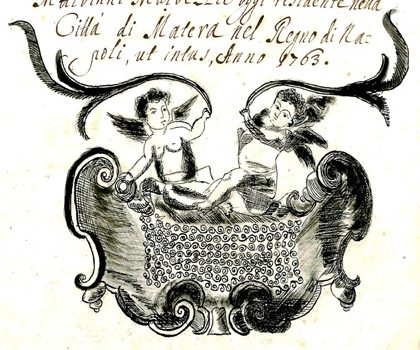 oggi residente nella
Città di Matera nel Regno di Na=
poli, ut intus, Anno 1763.